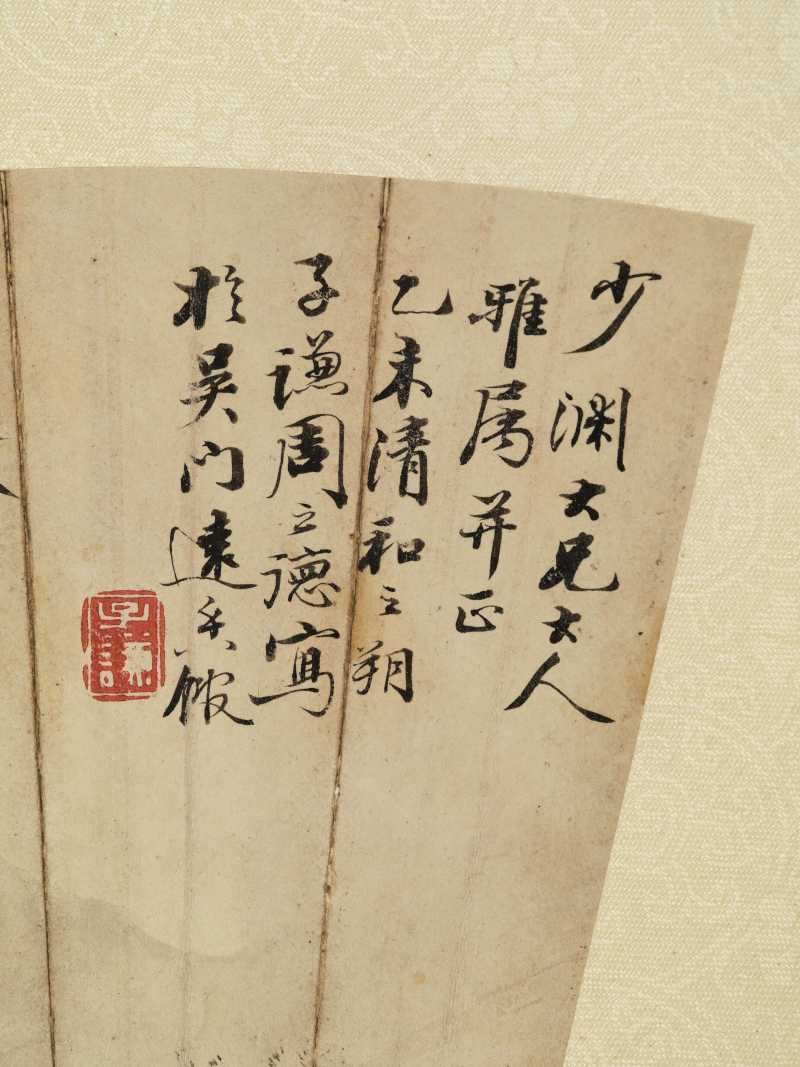 少渊大兄大人
雅属并正
乙未清和之朔
子谦周之德写
於吴门远香馆
子谦